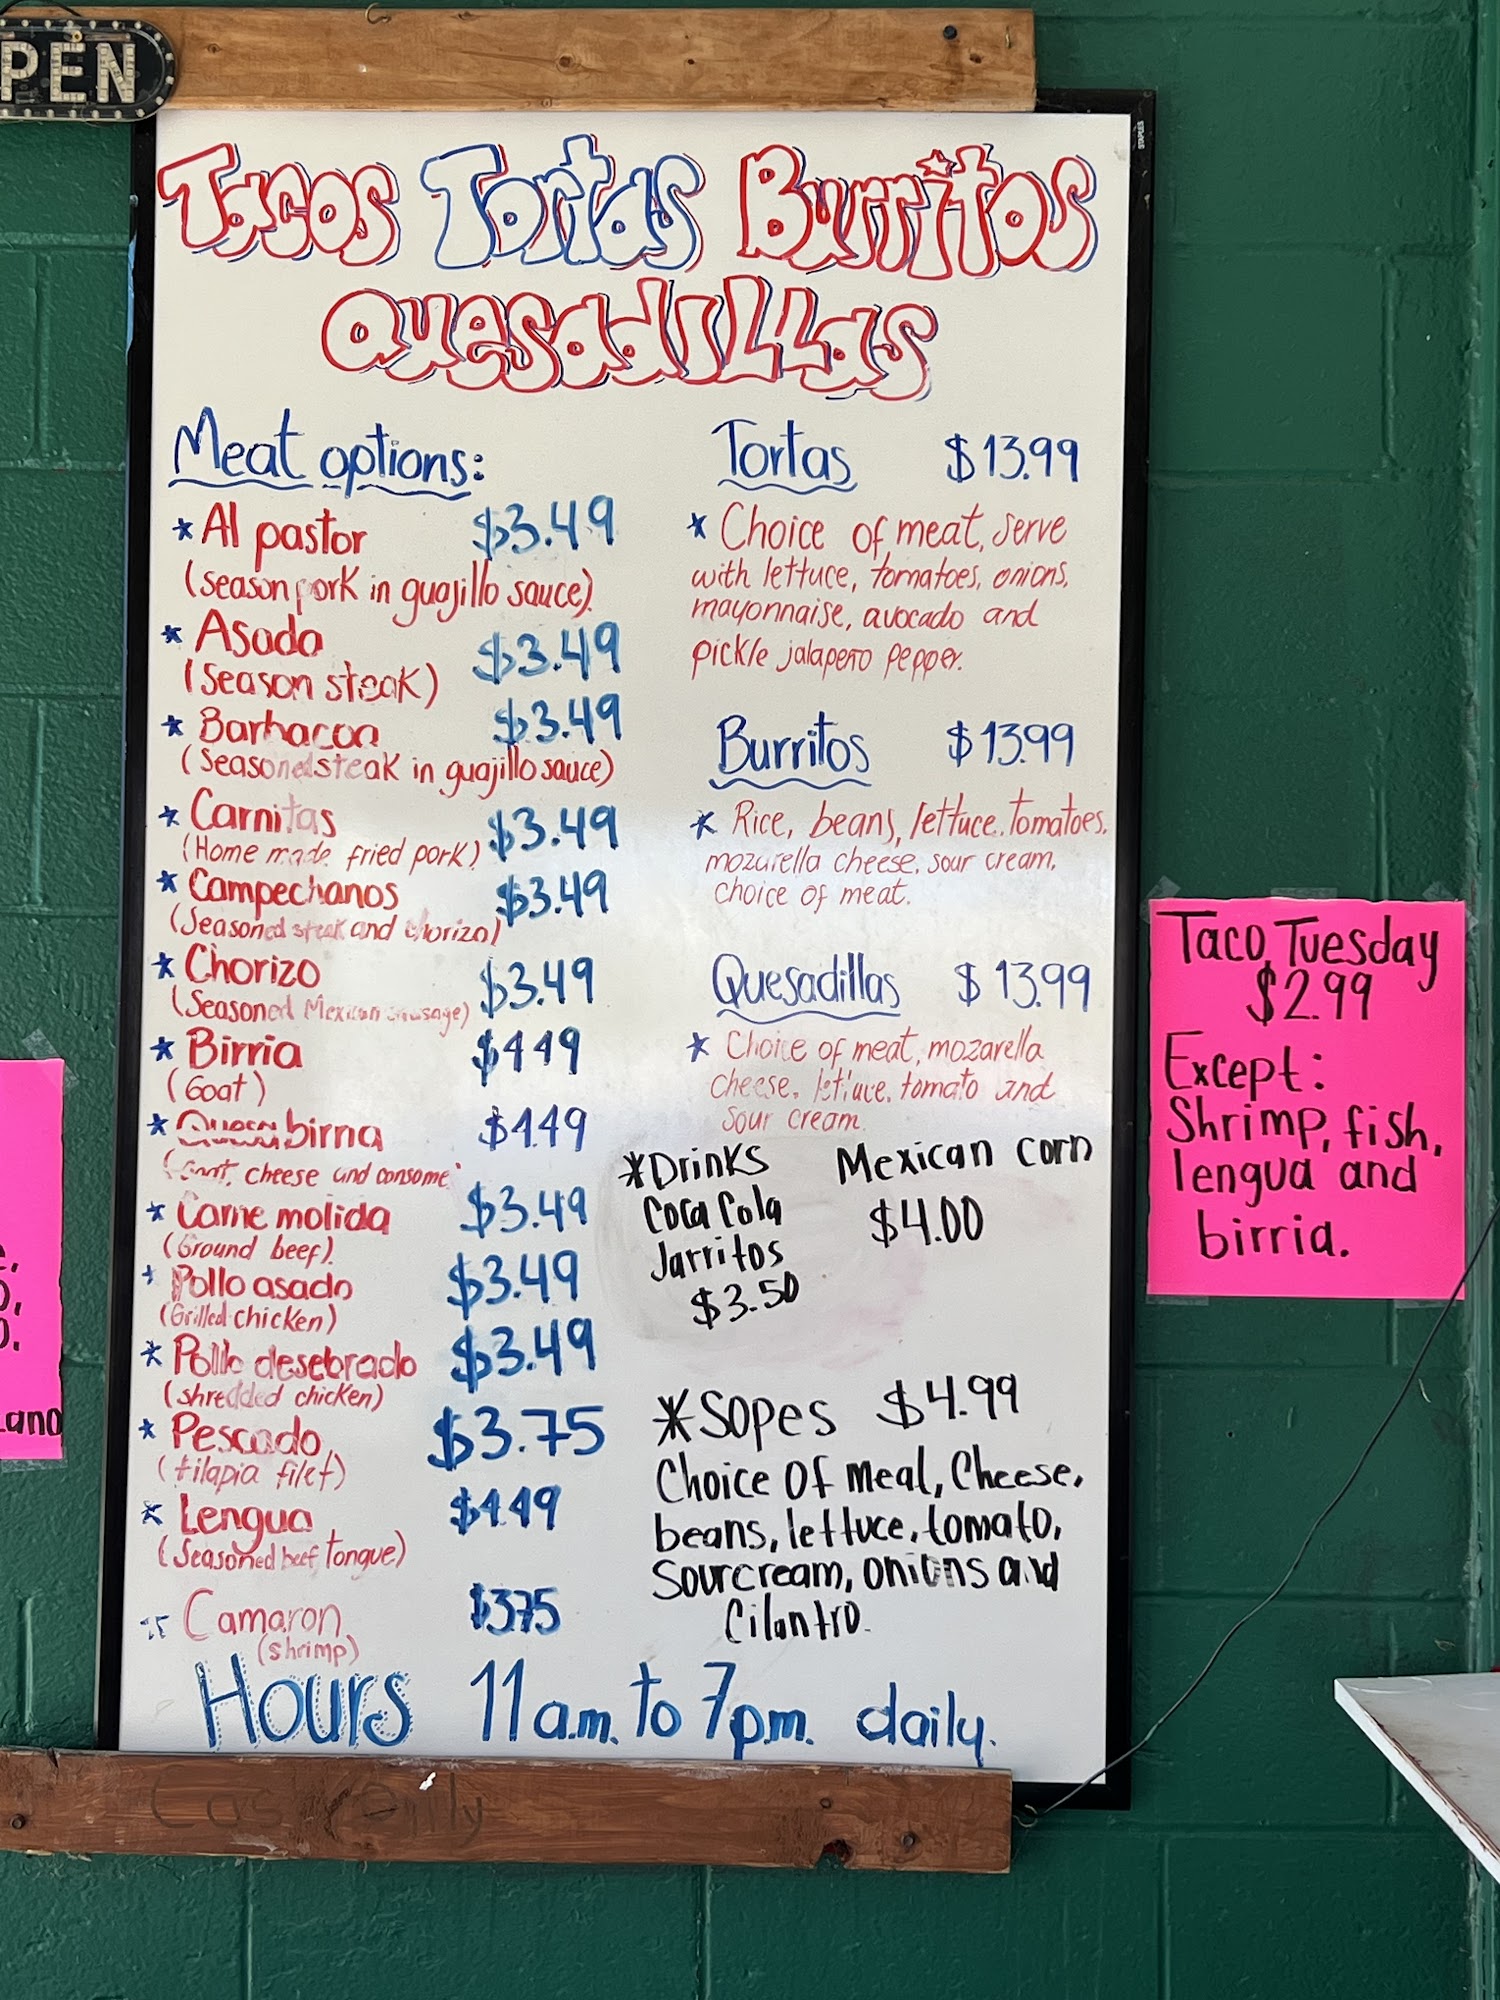 PEN
STAPLES
Tacos Tortas Burritos
Quesadillas
Meat options:
* Al pastor $3.49
(season pork in guajillo sauce)
* Asada $3.49
(Season steak)
* Barbacoa $3.49
(Seasoned steak in guajillo sauce)
* Carnitas $3.49
(Home made fried pork)
* Campechanos $3.49
(Seasoned steak and chorizo)
* Chorizo $3.49
(Seasoned Mexican sausage)
* Birria $4.49
(Goat)
* Quesabirria $4.49
(Goat, cheese and consome
* Carne molida $3.49
(Ground beef).
* Pollo asado $3.49
(Grilled chicken)
* Pollo desebrado $3.49
(shredded chicken)
* Pescado $3.75
(tilapia filet)
* Lengua $4.49
(Seasoned beef tongue)
Camaron $3.75
(shrimp)
Tortas $13.99
* Choice of meat, serve
with lettuce, tomatoes, onions,
mayonnaise, avocado and
pickle jalapeno pepper.
Burritos $13.99
* Rice, beans, lettuce, tomatoes,
mozarella cheese, sour cream,
choice of meat.
Quesadillas $13.99
* Choice of meat, mozarella
cheese, lettuce, tomato and
sour cream.
*Drinks
Coca Cola
Jarritos
$3.50
Mexican corn
$4.00
*Sopes $4.99
Choice Of meal, Cheese,
beans, lettuce, tomato,
Sourcream, onions and
Cilantro.
Hours 11 a.m. to 7 p.m. daily.
Taco Tuesday
$2.99
Except:
Shrimp, fish,
lengua and
birria.